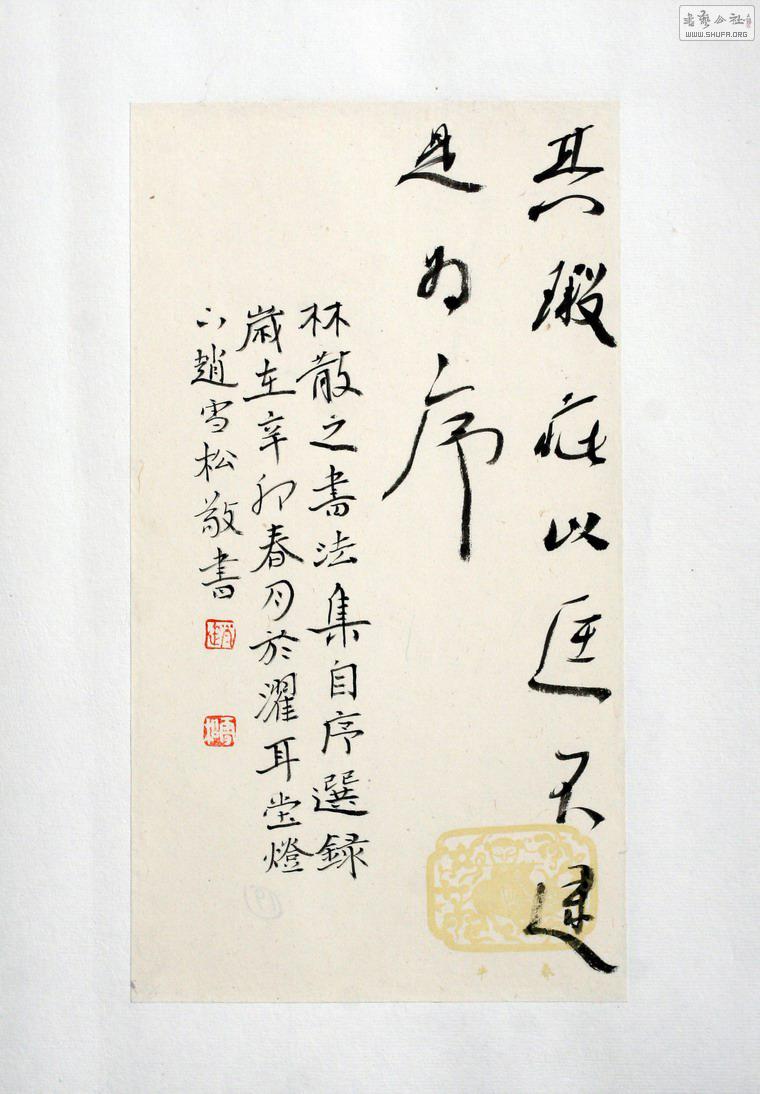 其瑕疵以匡不逮
是为序
林散之書法集自序選録
歲在辛卯春月於濯耳堂燈
下趙雪松敬書
書藝公社
WWW.SHUFA.ORG